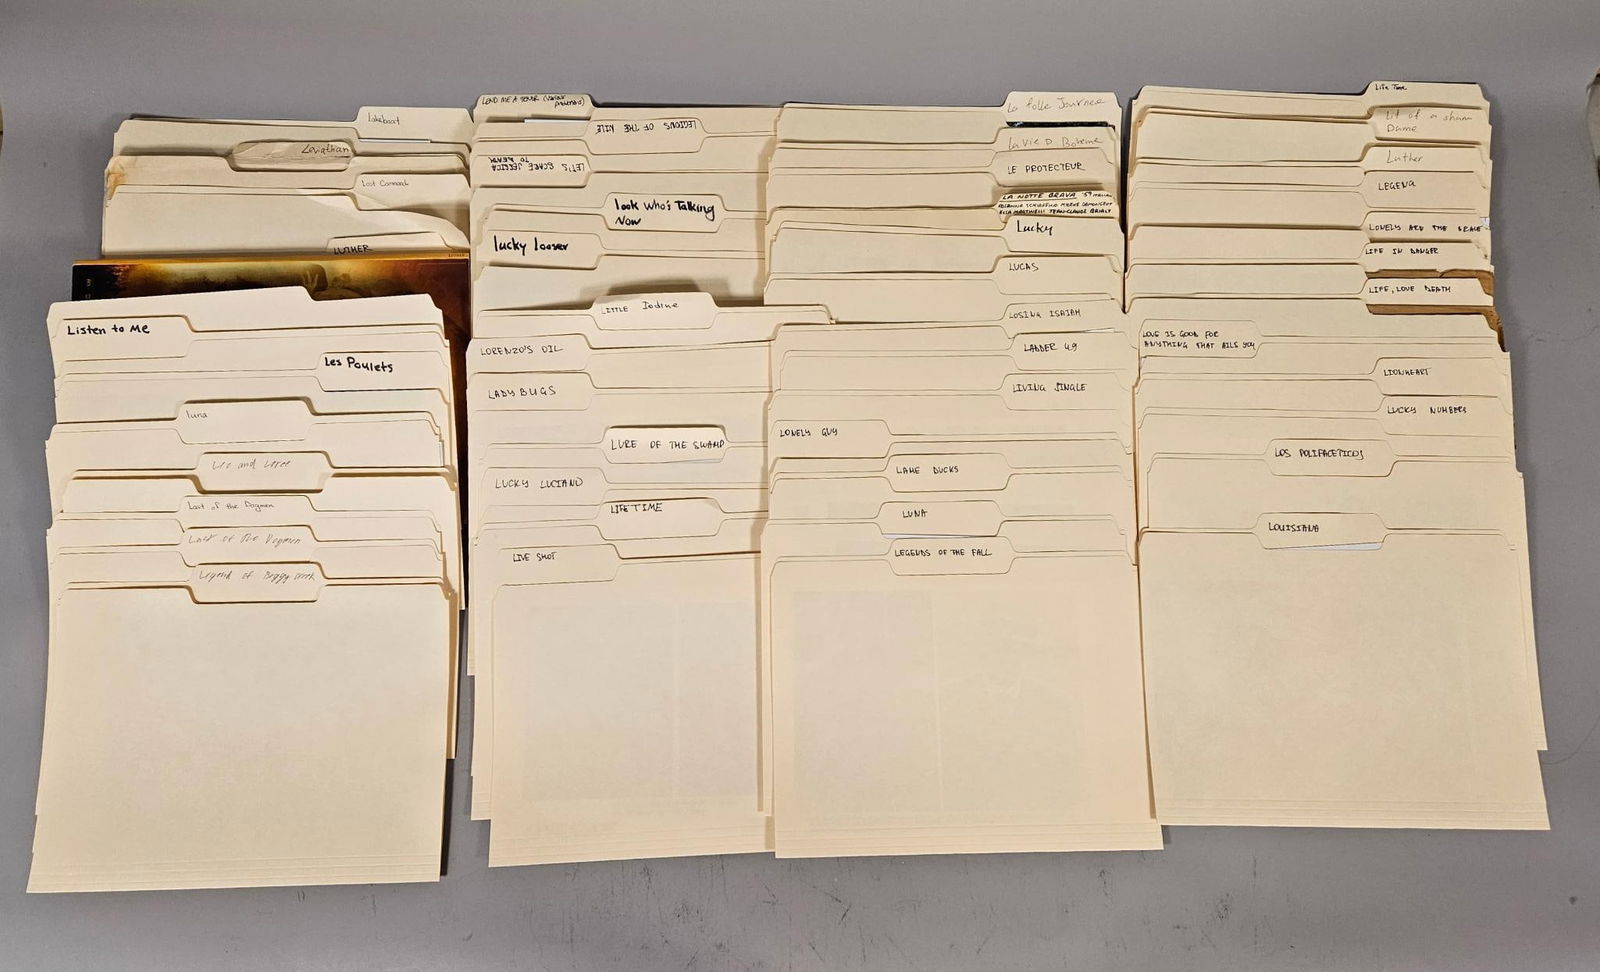 lakeboat
Leviathan
Lost Command
LUTHER
Listen to Me
Les Poulets
luna
Leo and Loree
Last of the Dogmen
Last of the Dogmen
Legend of Boggy Creek
LEND ME A TENOR
LEGIONS OF THE NILE
LET'S SCARE JESSICA
TO DEATH
Look Who's Talking
Now
lucky looser
LITTLE Iodine
LORENZO'S OIL
LADY BUGS
LURE OF THE SWAMP
LUCKY LUCIANO
LIFETIME
LIVE SHOT
La folle Journee
La Vie D Boheme
LE PROTECTEUR
LA NOTTE BRAVA '59
ROSANNA SCHIAFFINO MYLENE DEMONGEOT
ELSA MARTINELLI JEAN-CLAUDE BRIALY
Lucky
LUCAS
LOSING ISAIAH
LADDER 49
LIVING SINGLE
LONELY GUY
LAME DUCKS
LUNA
LEGENDS OF THE FALL
Life Time
Lit of a sham
Dame
Luther
LEGEND
LONELY ARE THE BRAVE
LIFE IN DANGER
LIFE, LOVE DEATH
LOVE IS GOOD FOR
ANYTHING THAT AILS YOU
LIONHEART
LUCKY NUMBERS
LOS POLIFACETICOS
LOUISIANA